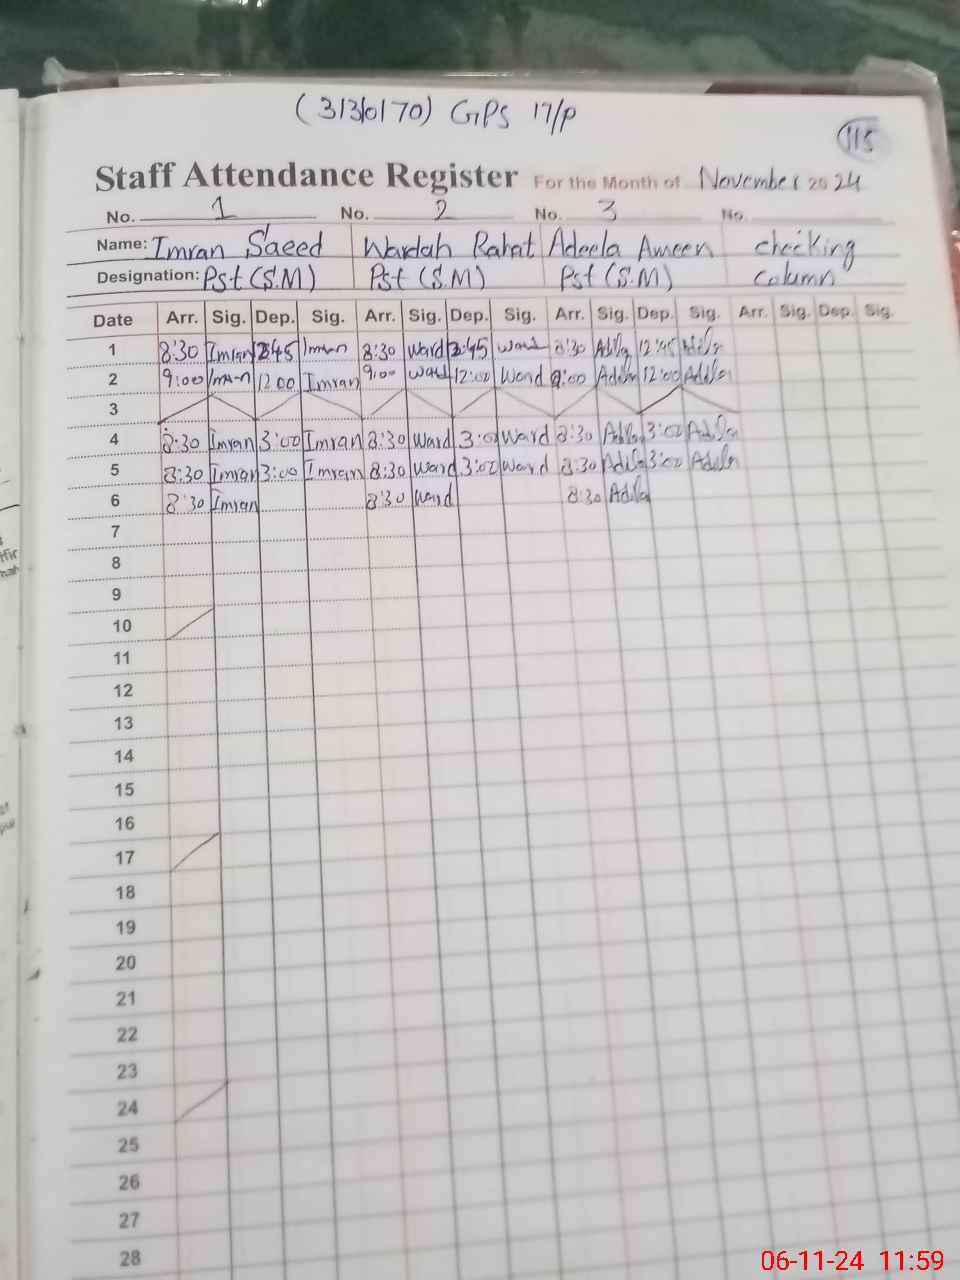 (31310170) GPS 17/P
115
Staff Attendance Register For the Month of November 2024
No. 1 No. 2 No. 3 No.
Name: Imran Saeed Wardah Rahat Adeela Ameen checking
Designation: Pst (S.M) Pst (S.M) Pst (S.M) column
Date Arr. Sig. Dep. Sig. Arr. Sig. Dep. Sig. Arr. Sig. Dep. Sig. Arr. Sig. Dep. Sig.
1 8:30 Imran 12:45 Imran 8:30 Ward 12:45 Ward 8:30 Adila 12:45 Adila
2 9:00 Imran 12:00 Imran 9:00 Ward 12:00 Ward 9:00 Adila 12:00 Adila
3
4 8:30 Imran 3:00 Imran 8:30 Ward 3:0 Ward 8:30 Adila 3:00 Adila
5 8:30 Imran 3:00 Imran 8:30 Ward 3:00 Ward 8:30 Adila 3:00 Adila
6 8:30 Imran 8:30 Ward 8:30 Adila
7
8
9
10
11
12
13
14
15
16
17
18
19
20
21
22
23
24
25
26
27
28
06-11-24 11:59